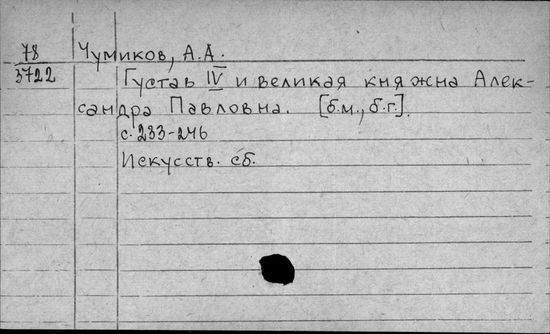 78 Чумиков, А.А.
3722 Густав IV и великая княжна Алек-
сандра Павловна. [б.м., б.г.].
с. 233-246
Искусств. сб.